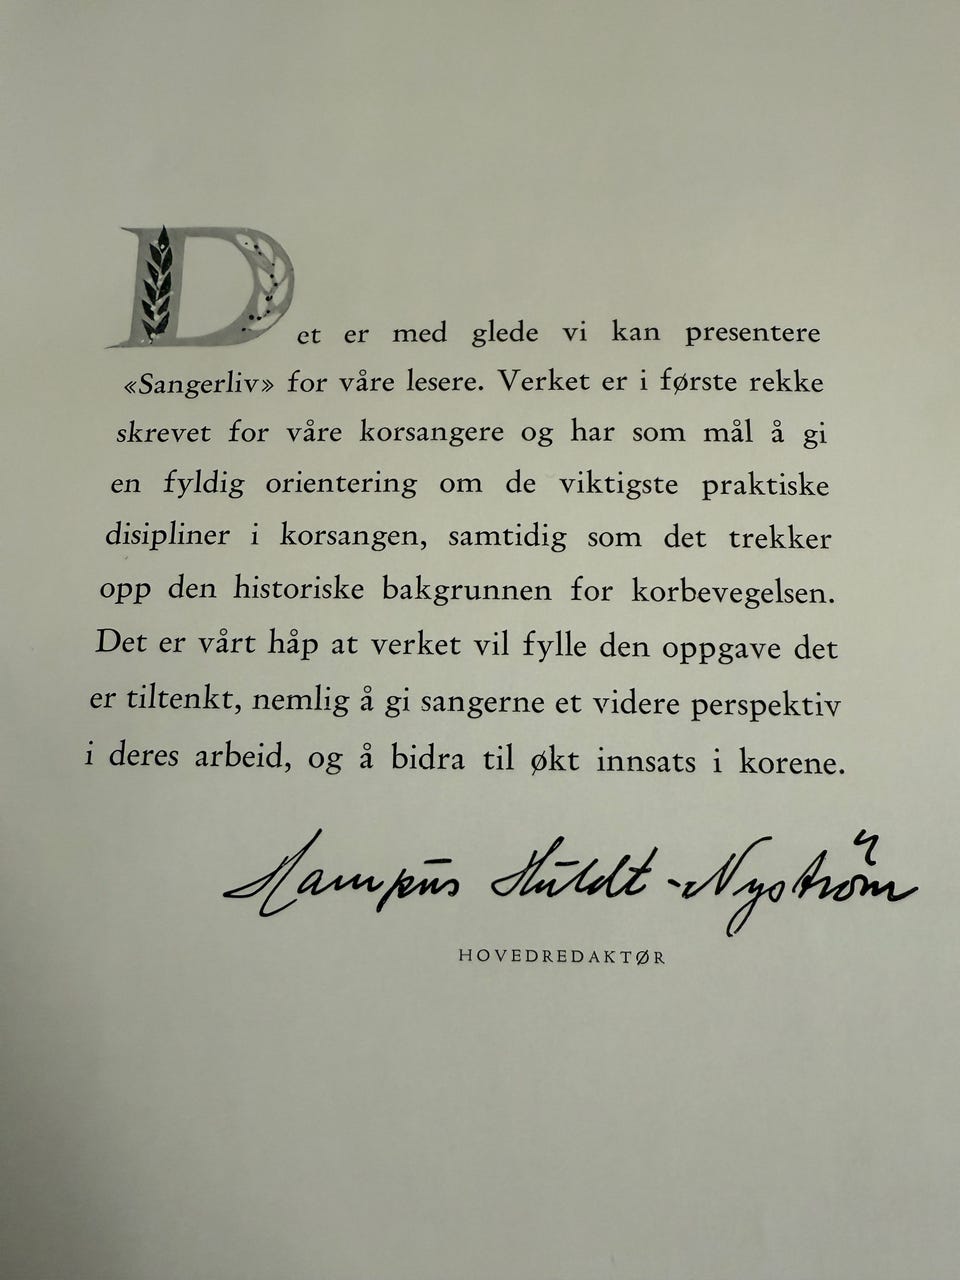 Det er med glede vi kan presentere
«Sangerliv» for våre lesere. Verket er i første rekke
skrevet for våre korsangere og har som mål å gi
en fyldig orientering om de viktigste praktiske
disipliner i korsangen, samtidig som det trekker
opp den historiske bakgrunnen for korbevegelsen.
Det er vårt håp at verket vil fylle den oppgave det
er tiltenkt, nemlig å gi sangerne et videre perspektiv
i deres arbeid, og å bidra til økt innsats i korene.
Hampus Huldt-Nyström
HOVEDREDAKTØR